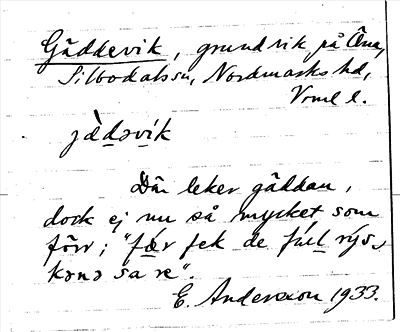 Gäddevik, grund vik på Åna,
Silbodalssn, Nordmarks hd,
Vrml l.
jæ̀dəvík
Där leker gäddan,
dock ej nu så mycket som
förr; "fǽr fek de fúl rýs-
kənə sa re".
E. Andersson 1933.